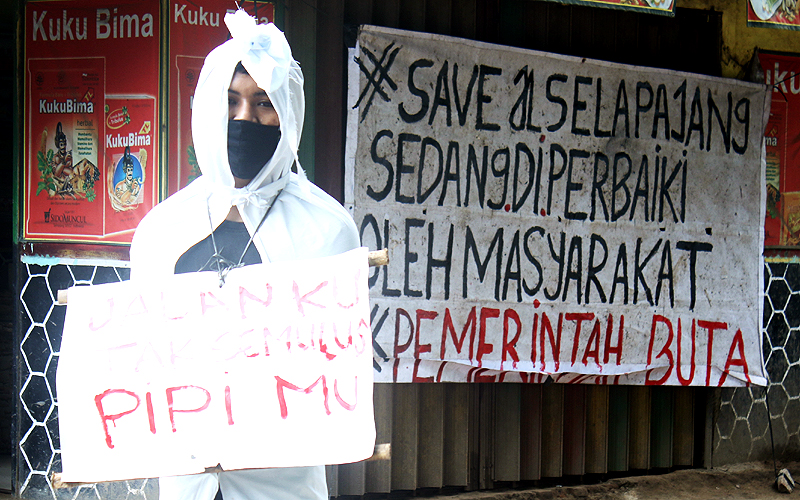 Kuku Bima
Kuku Bima
KukuBima
KukuBima
SIDOMUNCUL
#SAVE JL SELAPAJANG
SEDANG DIPERBAIKI
OLEH MASYARAKAT
PEMERINTAH BUTA
JALAN KU
TAK SEMULUS
PIPI MU